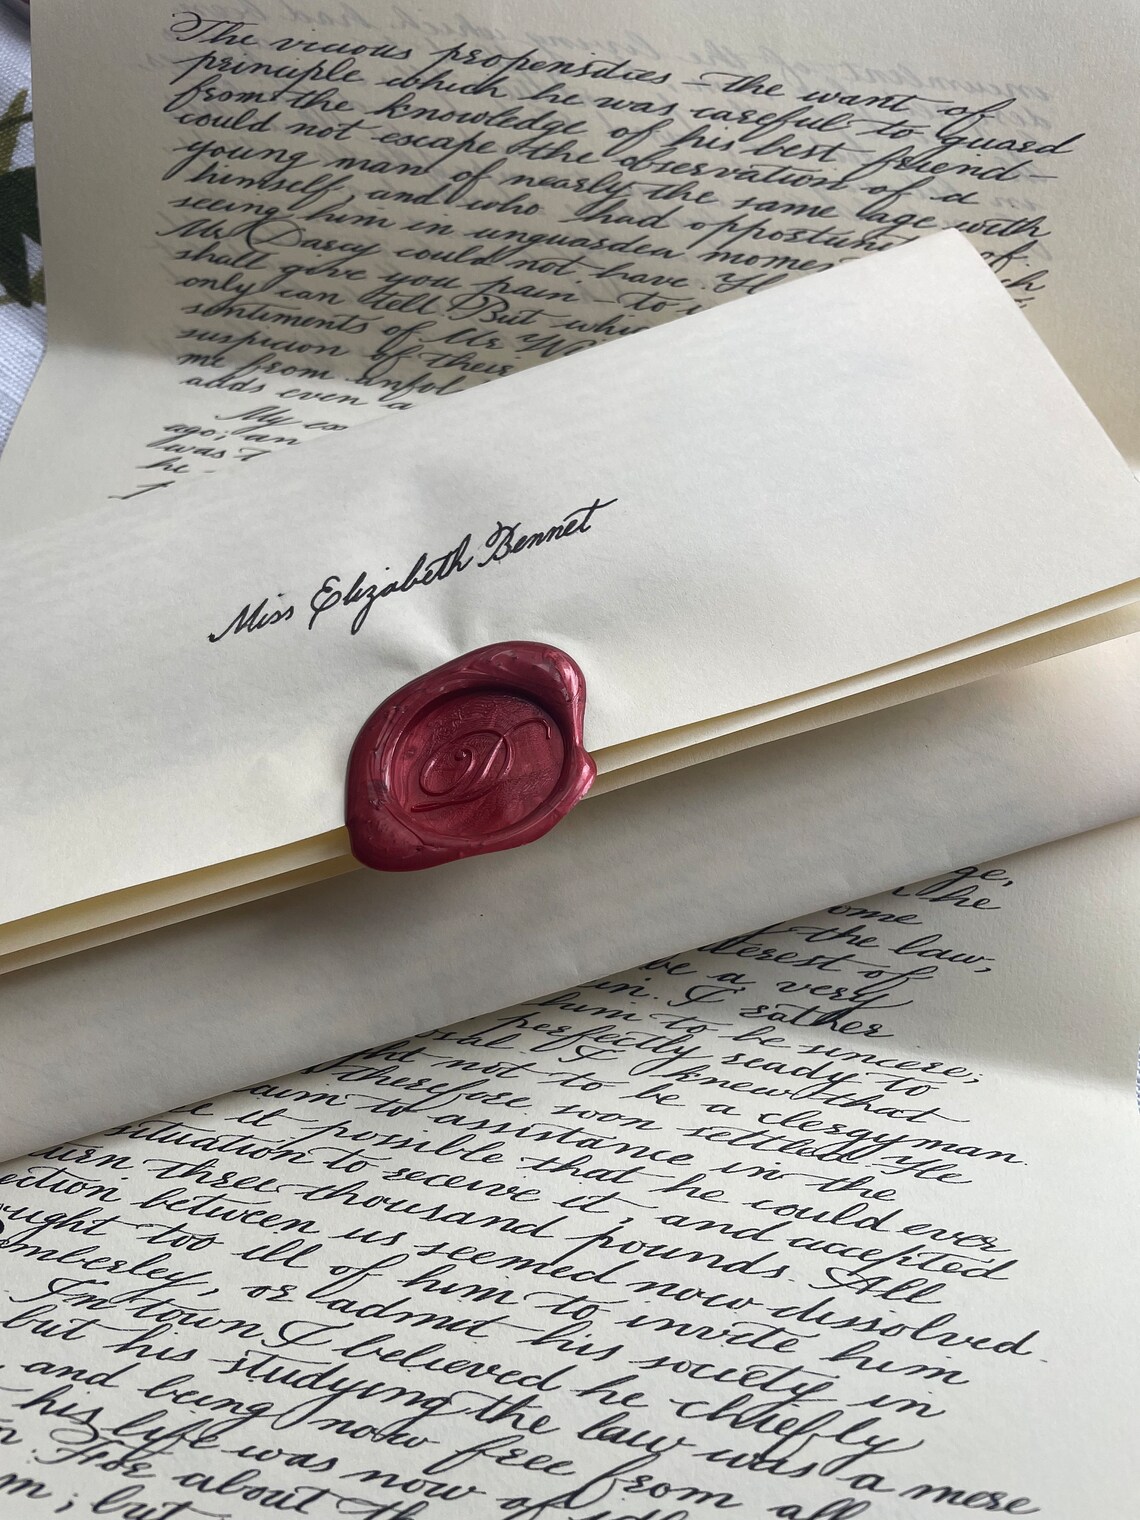 The vicious propensities – the want of
principle which he was careful to guard
from the knowledge of his best friend –
could not escape the observation of a
young man of nearly the same age with
himself, and who had opportuni of
seeing him in unguarded momen
Mr Darcy could not have.
shall give you pain – to
only can tell But whic
sentiments of Mr
suspicion of their
me from unfol
adds even a
My ex
ago; an
was
he
Miss Elizabeth Bennet
D
ge,
he
ome
the law,
terest of
be a very
in. I rather
him to be sincere;
perfectly ready to
sal. I knew that
ght not to be a clergyman.
therefore soon settled He
aim to assistance in the
it possible that he could ever
situation to receive it, and accepted
turn three thousand pounds. All
ection between us seemed now dissolved.
ught too ill of him to invite him
mberley, or admit his society in
In town I believed he chiefly
but his studying the law was a mere
and being now free from all
his life was now of
For about th
m; but